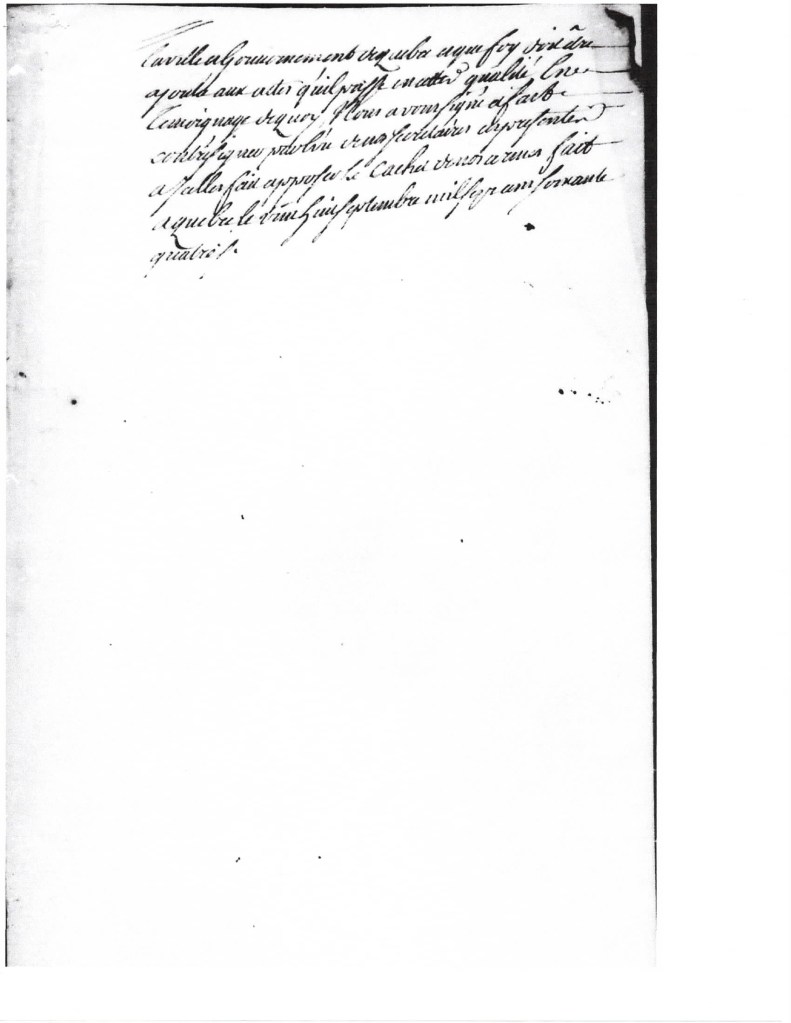 la ville et Gouvernement de quebec et que foy doit être
ajouté aux actes qu'il passe en cette qualité En
temoignage de quoy Nous avons signé et fait
contresigner par l'un de nos secretaires ces presentes
a Jcelles fait apposer le Cachet de nos armes fait
a quebec le vint huit septembre mil sept cent soixante
quatre